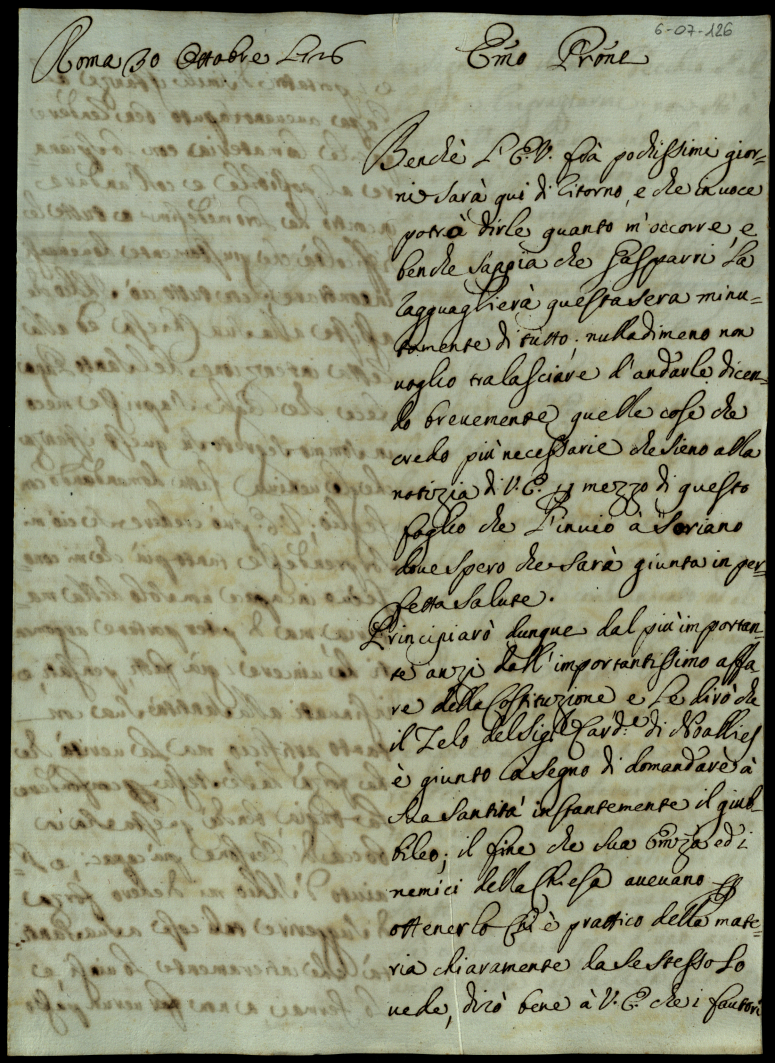 6-07-126
Roma 30 Ottobre 1726
Emo Prone
Benchè L'E.V. frà pochissimi gior=
ni sarà qui di ritorno, e che in voce
potrà dirle quanto m'occorre, e
benche sappia che Gasparri La
ragguaglierà questa sera minu=
tamente di tutto; nulladimeno non
voglio tralasciare d'andarle dicen=
do brevemente quelle cose che
credo più necessarie che sieno alla
notizia di V.E. p mezzo di questo
foglio che L'invio à Soriano
dove spero che sarà giunta in per=
fetta salute.
Principiarò dunque dal più importan=
te anzi dall'importantissimo affa
re della Costituzione e Le dirò che
il Zelo del Sigr Card.e di Noallies
è giunto à segno di domandare à
Sua Santità instantemente il giub=
bileo; il fine che sua Emza ed i
nemici della Chiesa avevano p
ottenerlo Chi è prattico della mate=
ria chiaramente da se stesso Lo
vede, dirò bene à V.E. che i fautori